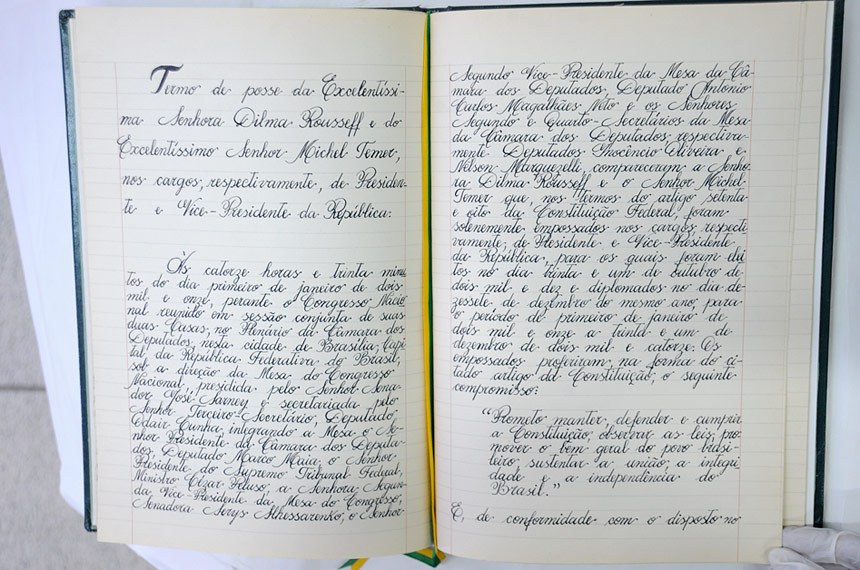 Termo de posse da Excelentíssi-
ma Senhora Dilma Rousseff e do
Excelentíssimo Senhor Michel Temer,
nos cargos, respectivamente, de Presiden-
te e Vice-Presidente da República.
Às catorze horas e trinta minu-
tos do dia primeiro de janeiro de dois
mil e onze, perante o Congresso Nacio
nal reunido em sessão conjunta de suas
duas Casas, no Plenário da Câmara dos
Deputados, nesta cidade de Brasília, Capi-
tal da República Federativa do Brasil,
sob a direção da Mesa do Congresso
Nacional, presidida pelo Senhor Sena-
dor José Sarney e secretariada pelo
Senhor Terceiro-Secretário, Deputado
Odair Cunha, integrando a Mesa o Se-
nhor Presidente da Câmara dos Deputa-
dos, Deputado Marco Maia, o Senhor
Presidente do Supremo Tribunal Federal,
Ministro Cezar Peluso, a Senhora Segun-
da Vice-Presidente da Mesa do Congresso,
Senadora Serys Slhessarenko, o Senhor
Segundo Vice-Presidente da Mesa da Câ-
mara dos Deputados, Deputado Antonio
Carlos Magalhães Neto e os Senhores
Segundo e Quarto-Secretários da Mesa
da Câmara dos Deputados, respectiva-
mente Deputados Inocêncio Oliveira e
Nelson Marquezelli, compareceram a Senho-
ra Dilma Rousseff e o Senhor Michel
Temer que, nos termos do artigo setenta
e oito da Constituição Federal, foram
solenemente empossados nos cargos, respecti
vamente, de Presidente e Vice-Presidente
da República, para os quais foram elei
tos no dia trinta e um de outubro de
dois mil e dez e diplomados no dia de-
zessete de dezembro do mesmo ano, para
o período de primeiro de janeiro de
dois mil e onze a trinta e um de
dezembro de dois mil e catorze. Os
empossados proferiram, na forma do ci-
tado artigo da Constituição, o seguinte
compromisso:
"Prometo manter, defender e cumprir
a Constituição, observar as leis, pro-
mover o bem geral do povo brasi-
leiro, sustentar a união, a integri
dade e a independência do
Brasil."
E, de conformidade com o disposto no